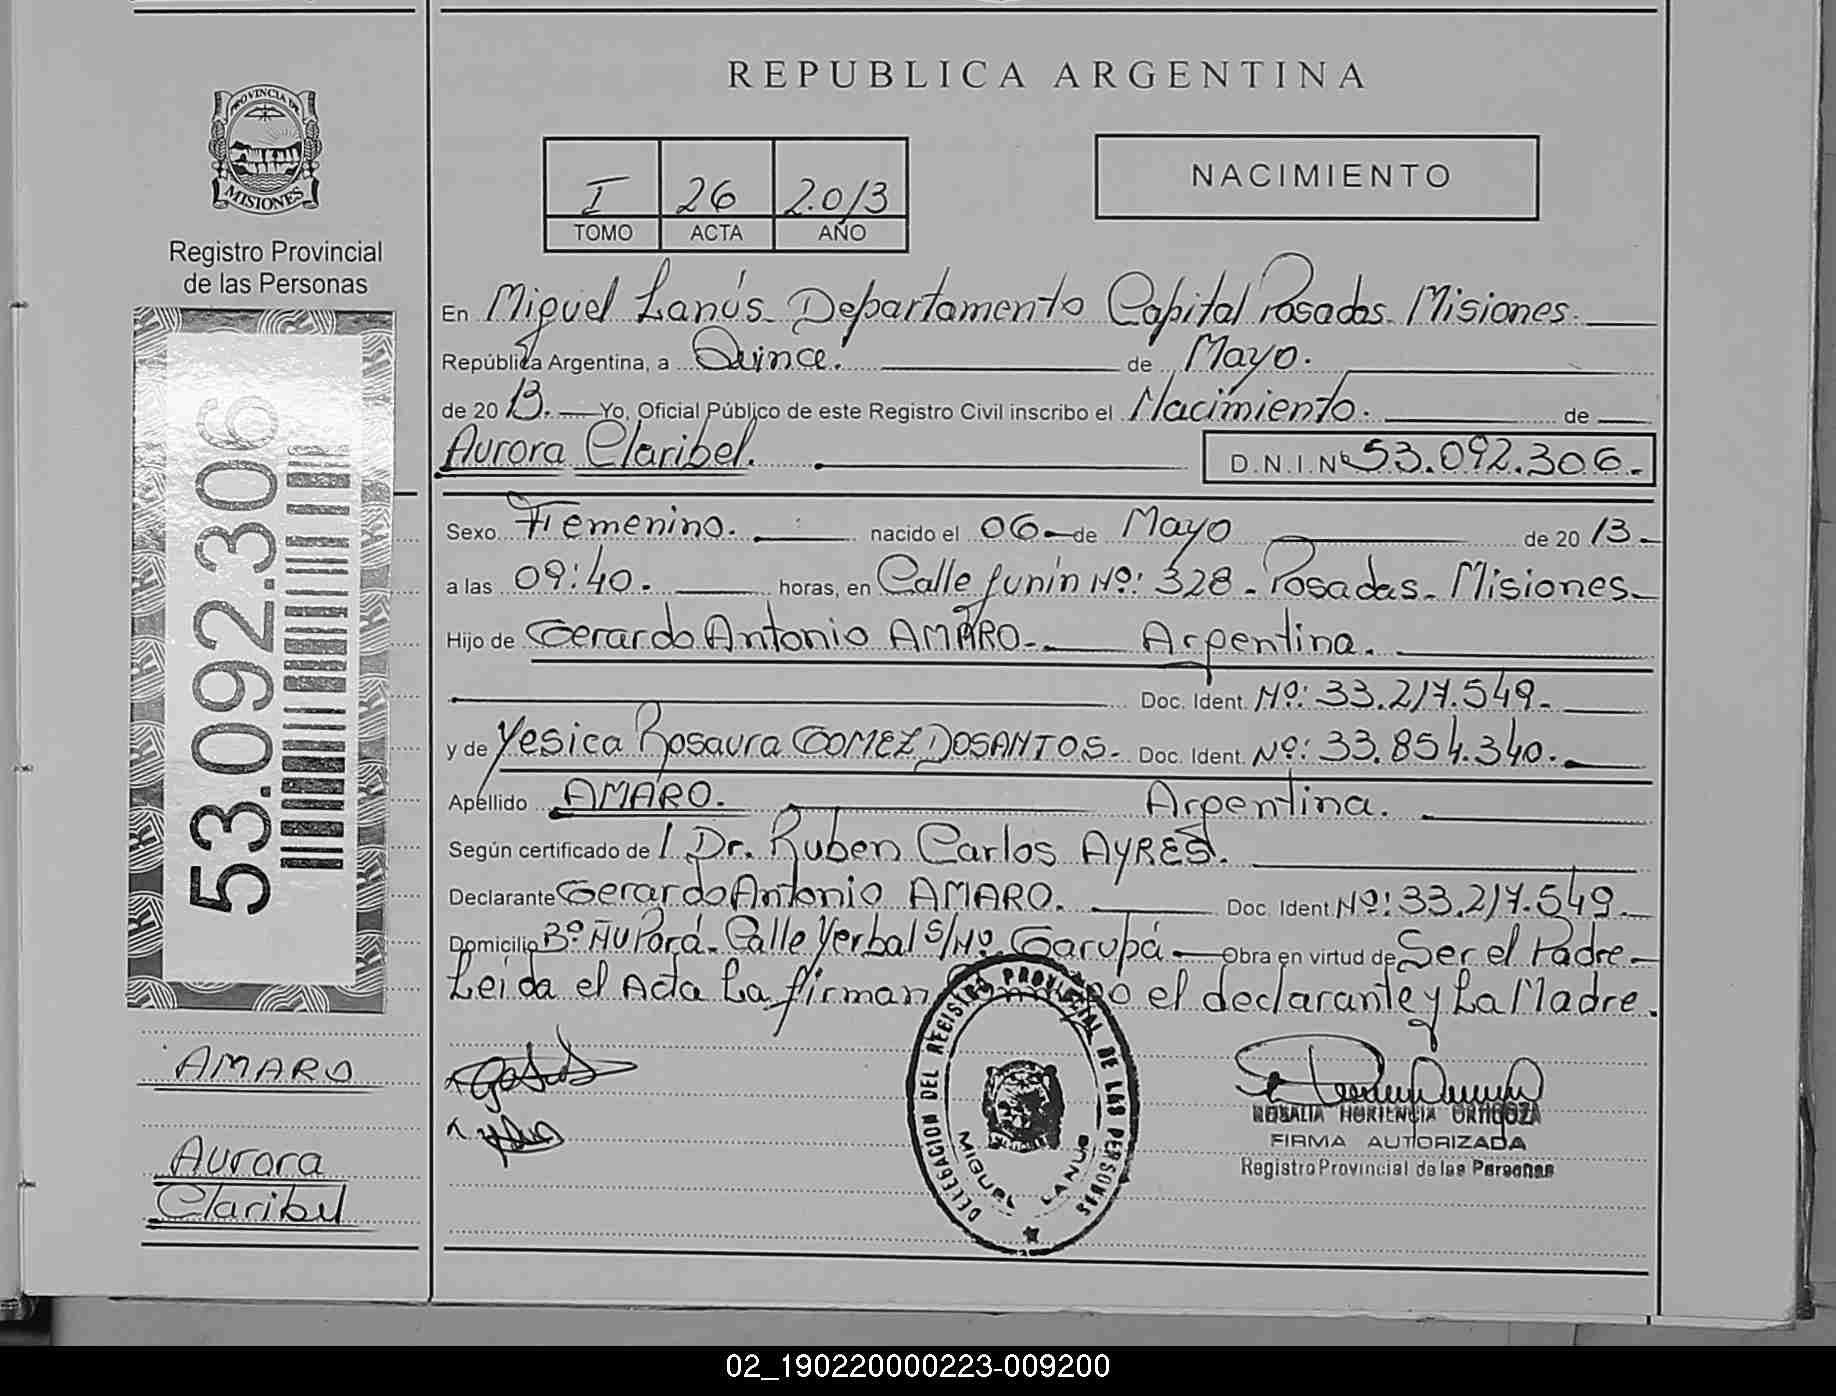 REPUBLICA ARGENTINA
PROVINCIA DE
MISIONES
Registro Provincial
de las Personas
I 26 2.013
TOMO ACTA AÑO
NACIMIENTO
En Miguel Lanús. Departamento Capital Posadas. Misiones.
República Argentina, a Quince. de Mayo.
de 20 13. Yo, Oficial Público de este Registro Civil inscribo el Nacimiento. de
Aurora Claribel. D.N.I.Nº 53.092.306.
Sexo Femenino. nacido el 06 de Mayo de 20 13.
a las 09:40. horas, en Calle Junín Nº: 328 - Posadas - Misiones
Hijo de Gerardo Antonio AMARO. Argentina.
Doc. Ident. Nº: 33.217.549.
y de Yesica Rosaura GOMEZ DOSANTOS. Doc. Ident. Nº: 33.854.340.
Apellido AMARO. Argentina.
Según certificado de Dr. Ruben Carlos AYRES.
Declarante Gerardo Antonio AMARO. Doc. Ident Nº: 33.217.549.
Domicilio Bº Ñu Porá. Calle Yerbal S/Nº. Garupá Obra en virtud de Ser el Padre
Leída el Acta La firman el declarante y La Madre.
53.092.306
AMARO
Aurora
Claribel
DELEGACION DEL REGISTRO PROVINCIAL DE LAS PERSONAS
MIGUEL LANUS
ROSALIA HORTENCIA ORTIGOZA
FIRMA AUTORIZADA
Registro Provincial de las Personas
02_190220000223-009200